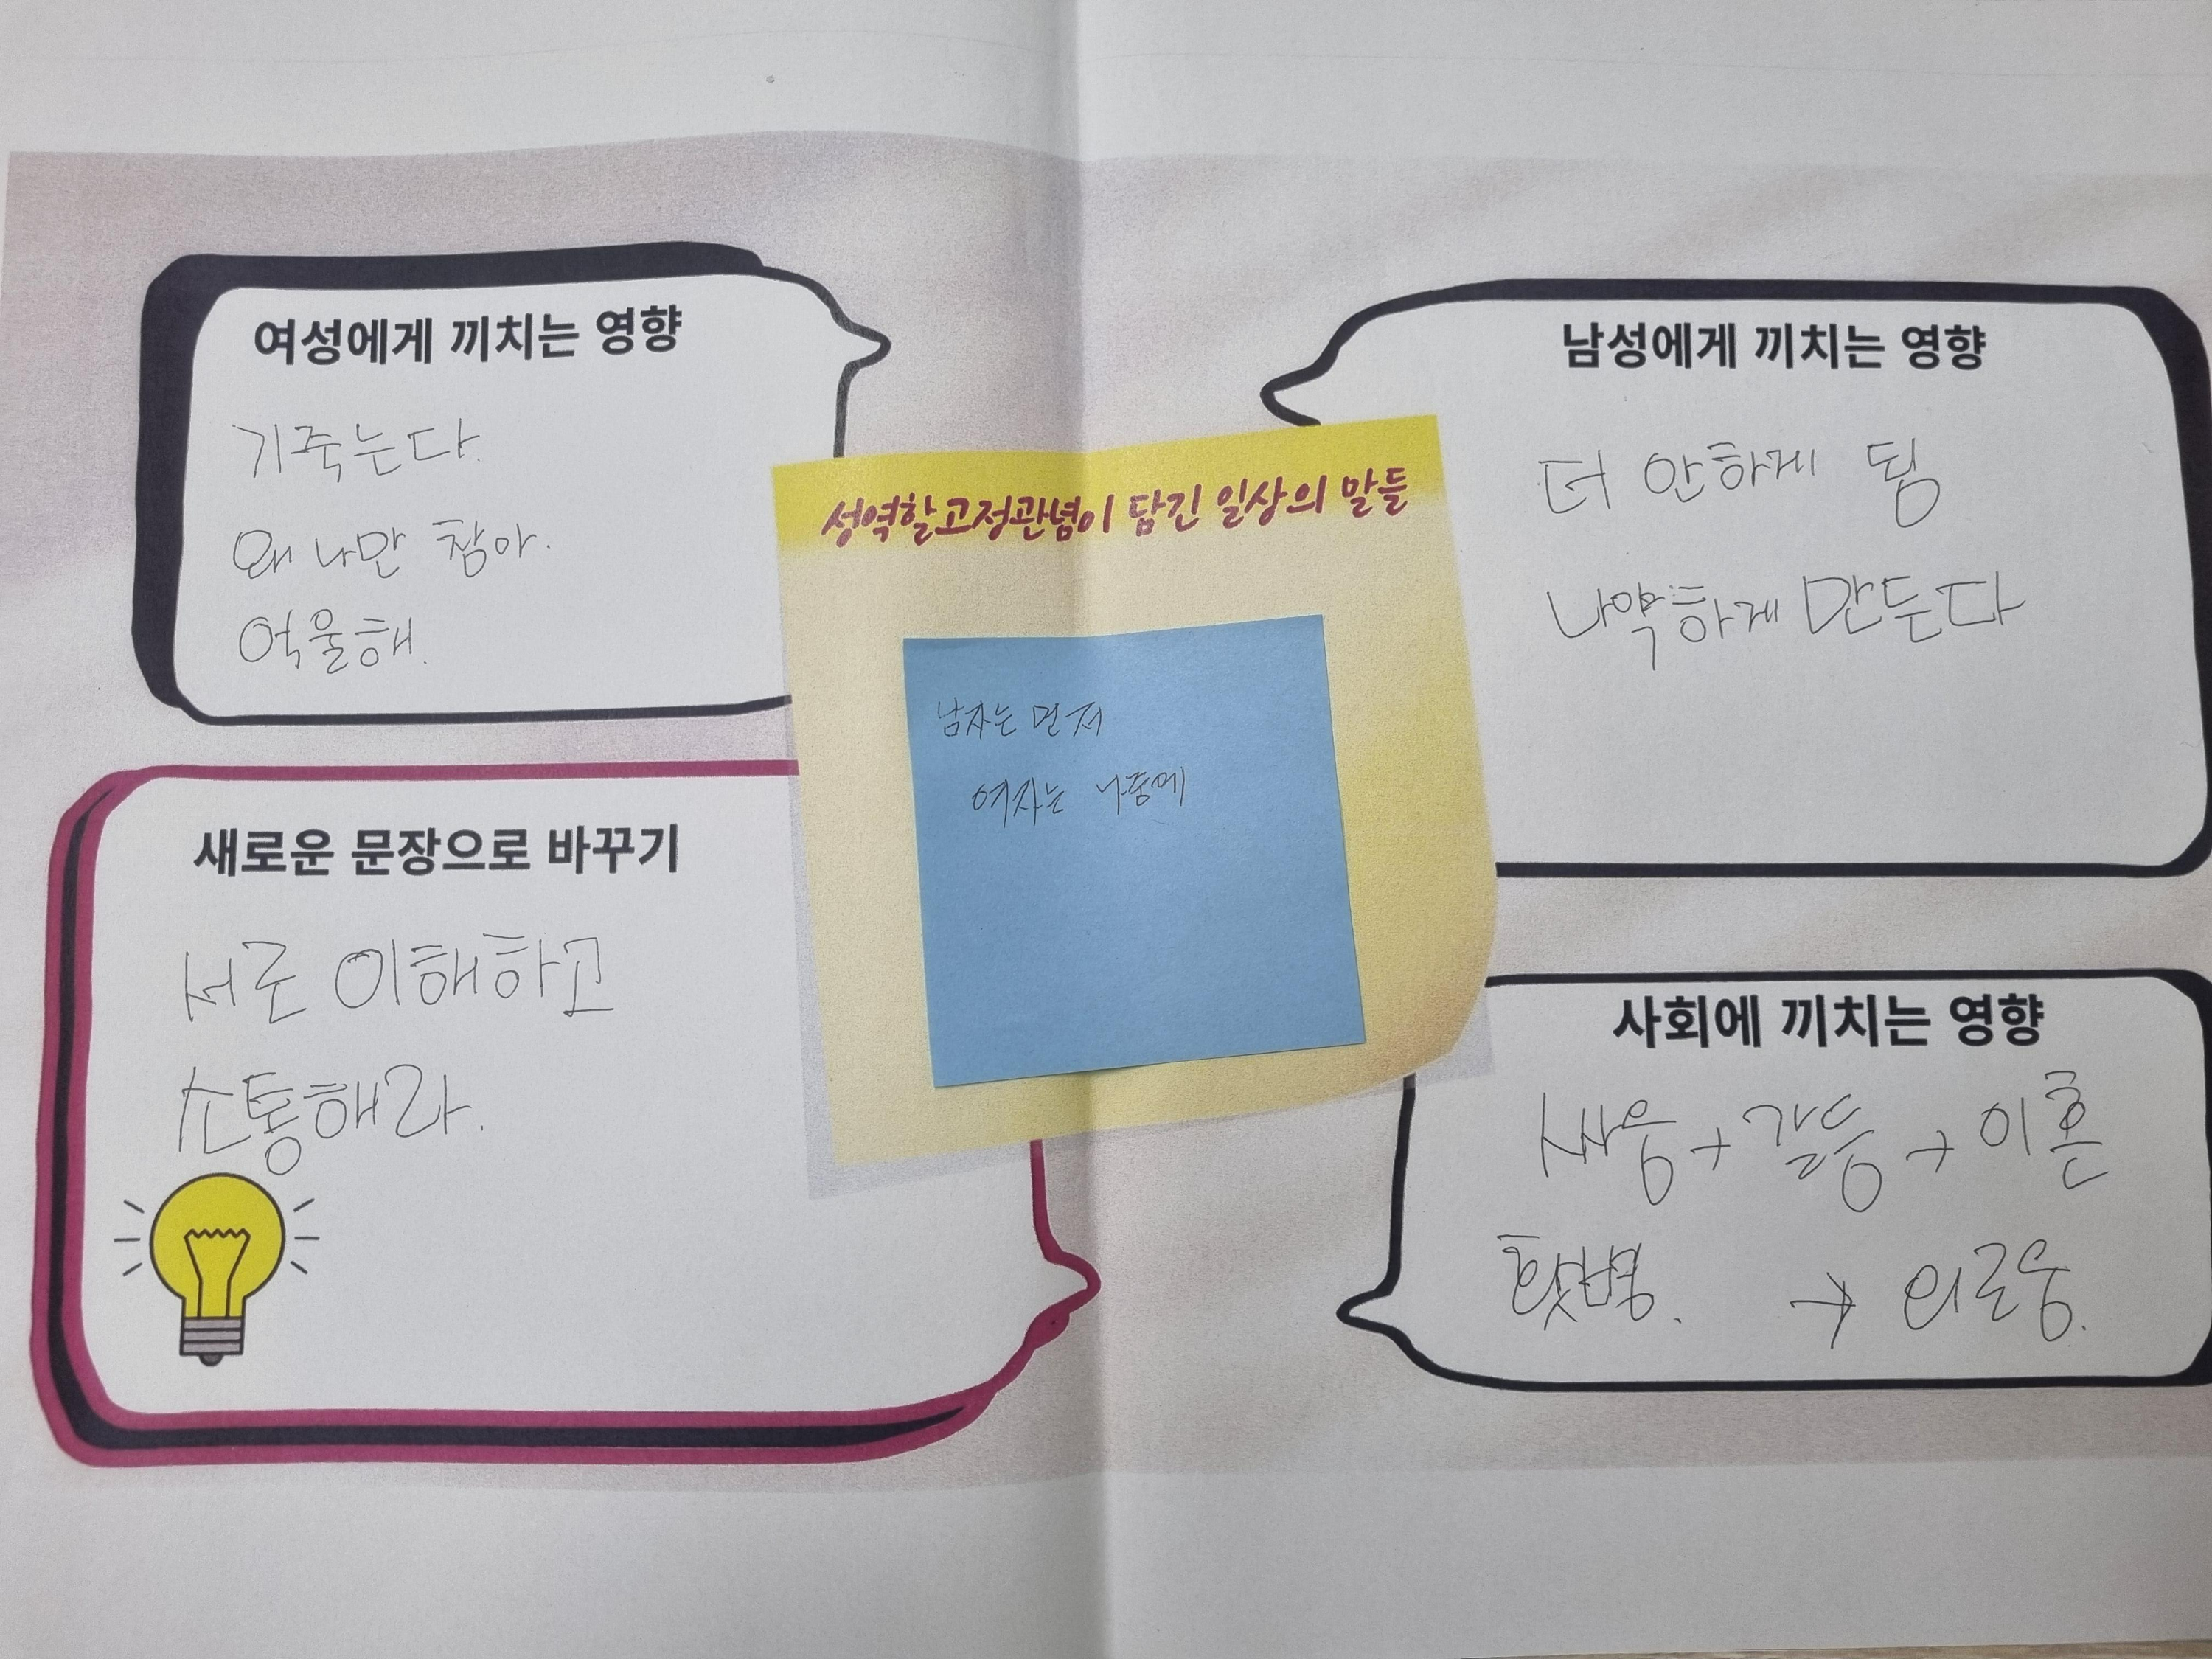 여성에게 끼치는 영향
기죽는다.
왜 나만 참아.
억울해.
남성에게 끼치는 영향
더 안하게 됨
나약하게 만든다
성역할고정관념이 담긴 일상의 말들
남자는 먼저
여자는 나중에
새로운 문장으로 바꾸기
서로 이해하고
소통해라.
사회에 끼치는 영향
싸움 + 갈등 + 이혼
홧병. → 외로움.